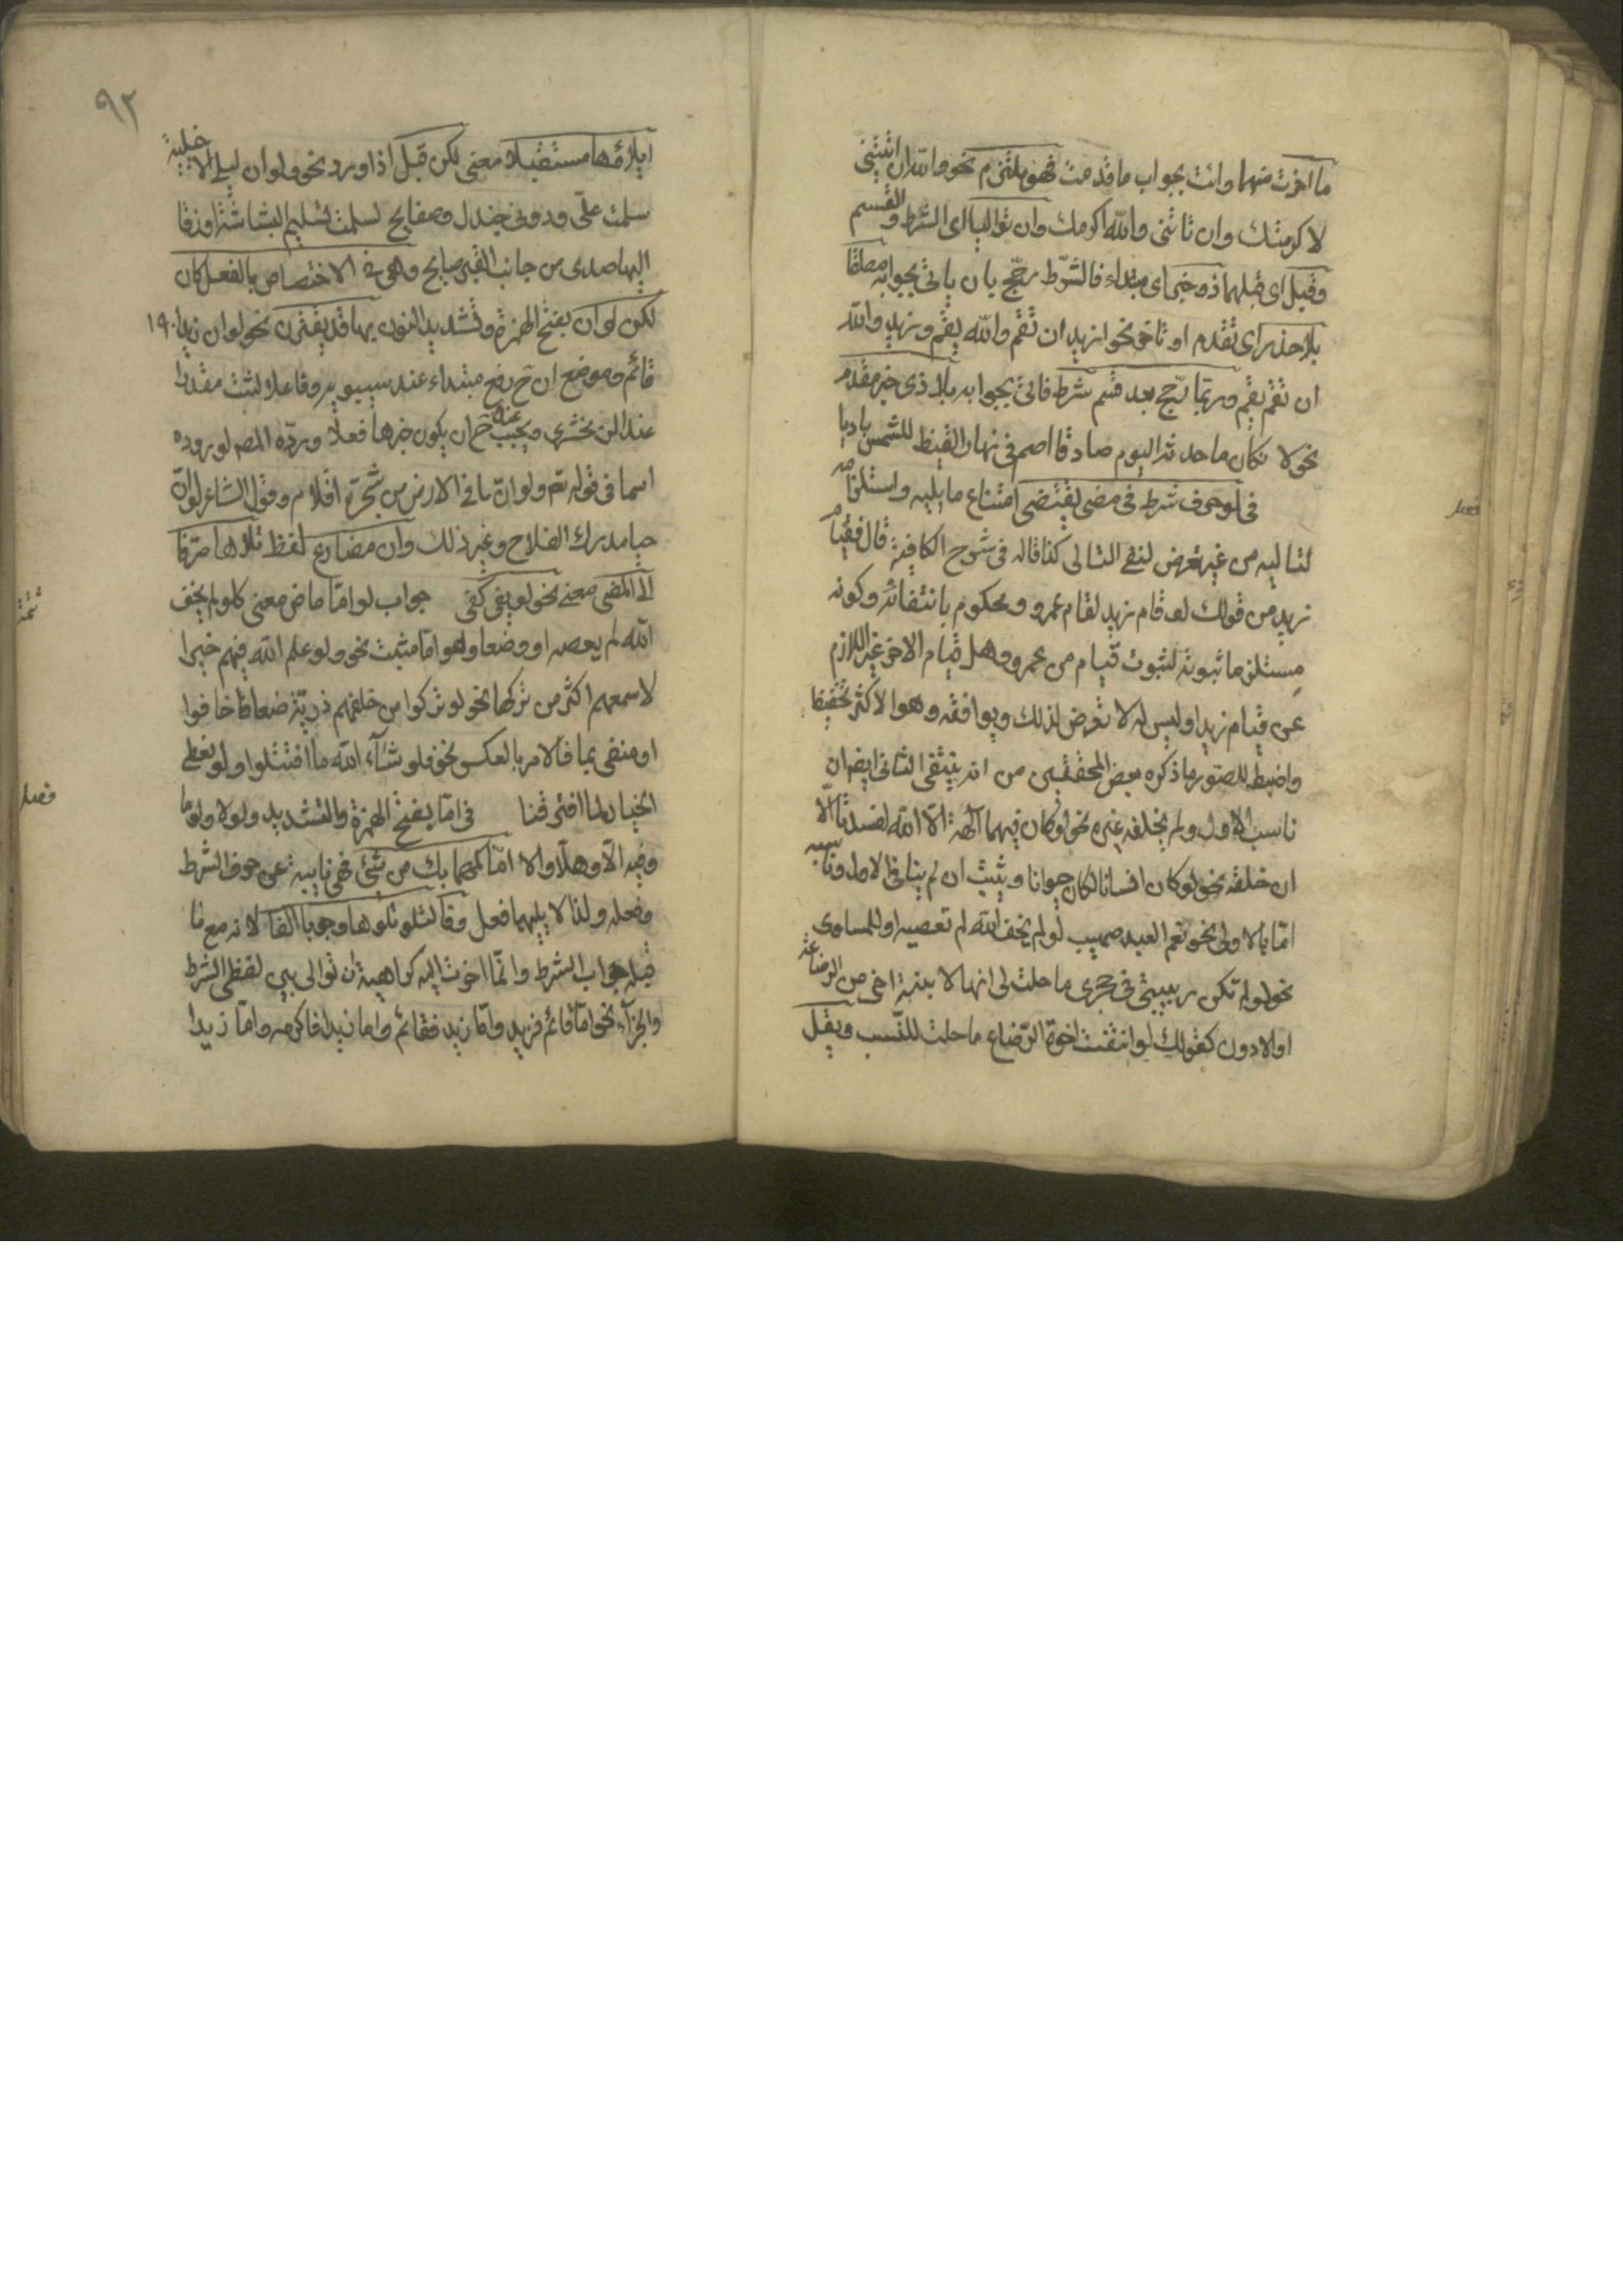 ما اخرت منهما وائت بجواب ما قدمت فهو ملتزم نحو والله ان اتيتني
لاكرمتك وان تاتني والله اكرمك وان تواليا اى الشرط والقسم
وقبل اى قبلهما ذو خبر اى مبتداء فالشرط رجّح بان ياتى بجوابه مطلقا
بلا حذر اى تقدم او تاخر نحو زيد ان تقم والله يقم وزيد والله
ان تقم يقم وربما رجّح بعد قسم شرط فاتى بجوابه بلا ذى خبر مقدم
نحو لا نكان ما حدثته اليوم صادقا اصم فى نهار القيظ للشمس باديا
فصل
فى لو حرف شرط فى مضى يقتضى امتناع ما يليه واستلزامه
لتاليه من غير تعرض لنفى التالى كذا قاله فى شرح الكافية قال فقيام
زيد من قولك لو قام زيد لقام عمرو محكوم بانتفائه وكونه
مستلزما ثبوته لثبوت قيام من عمرو وهل قيام الاخر غير اللازم
عن قيام زيد او ليس له لا تعرض لذلك ويوافقه وهو الاكثر تحقيقا
واضبط للصور ما ذكره بعض المحققين من انه ينتفى الثانى ايضا ان
ناسب الاول ولم يخلفه غيره نحو لو كان فيهما آلهة الا الله لفسدتا لا
ان خلفه نحو لو كان انسانا لكان حيوانا ويثبت ان لم يناف الاول وناسبه
امّا بالاولى نحو نعم العبد صهيب لو لم يخف الله لم تعصيه او للمساوى
نحو لو لم تكن ربيبتى فى حجرى ما حلت لى انها لابنة اخى من الرضاعة
او الادون كقولك لو انتفت اخوة الرضاع ما حلت للنسب ويقل
٩٢
ايلاؤها مستقبلا معنى لكن قبل اذا ورد نحو ولو ان ليلى الاخيلية
سلمت علىّ ودونى جندل وصفايح لسلمت تسليم البشاشة او زقا
اليها صدى من جانب القبر صايح وهى فى الاختصاص بالفعل كان
لكن لو ان بفتح الهمزة وتشديد النون بها قد يقترن نحو لو ان زيدا
قائم وموضع ان ح رفع مبتداء عند سيبويه وفاعلا لثبت مقدرا
عند الزمخشرى ويجب عنده ح ان يكون خبرها فعلا وردّه المصـ لوروده
اسما فى قوله تعـ ولو انّ ما فى الارض من شجرة اقلام وقول الشاعر لو انّ
حيا مدرك الفلاح وغير ذلك وان مضارع لفظ تلاها صرفا
الى المضى معنى نحو لو يفى كفى جواب لو امّا ماض معنى كلو لم يخف
تتمة
الله لم يعصه او وضعا وهو امّا مثبت نحو ولو علم الله فيهم خيرا
لاسمعهم اكثر من تركها نحو لو تركوا من خلفهم ذرية ضعافا خافوا
او منفى بما فالامر بالعكس نحو فلو شآء الله ما اقتتلوا ولو نعطى
الخيار لما افترقنا فى امّا بفتح الهمزة والتشديد ولولا ولوما
فصل
وفيه الاّ وهلاّ والا امّا كمهما يك من شئ فهى نايبة عن حرف الشرط
وفعله ولذا لا يليهما فعل وفا لتلو تلوها وجوبا الفا لانه مع ما
قبله جواب الشرط وانّما اخرت اليه كراهية ان توالى بين لفظى الشرط
والجزآء نحو امّا قائم فزيد وامّا زيد فقائم واما زيدا فاكرمه وامّا زيدا